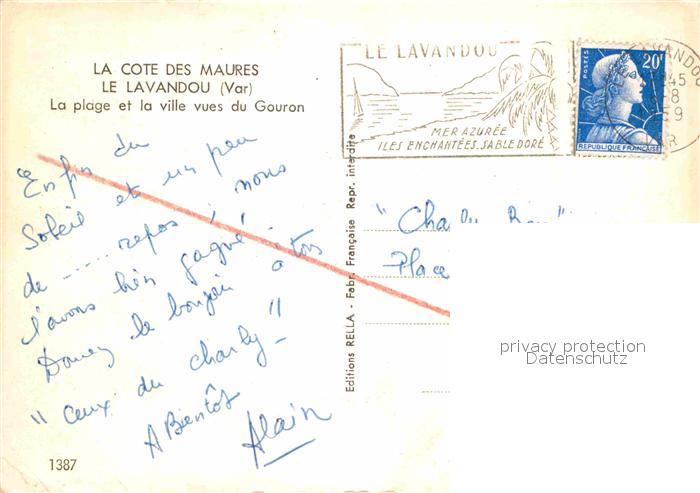 LA COTE DES MAURES
LE LAVANDOU (Var)
La plage et la ville vues du Gouron
Enfin du
Soleil et un peu
de ..... repos, nous
l'avons bien gagné.
Donnez le bonjour à tous
"Ceux du Charly"
A Bientôt
Alain
1387
Editions RELLA - Fabr. Française Repr. interdite
LE LAVANDOU
MER AZURÉE
ILES ENCHANTÉES. SABLE DORÉ
POSTES
20F
REPUBLIQUE FRANÇAISE
LAVANDOU
45
-8
59
Place
privacy protection
Datenschutz